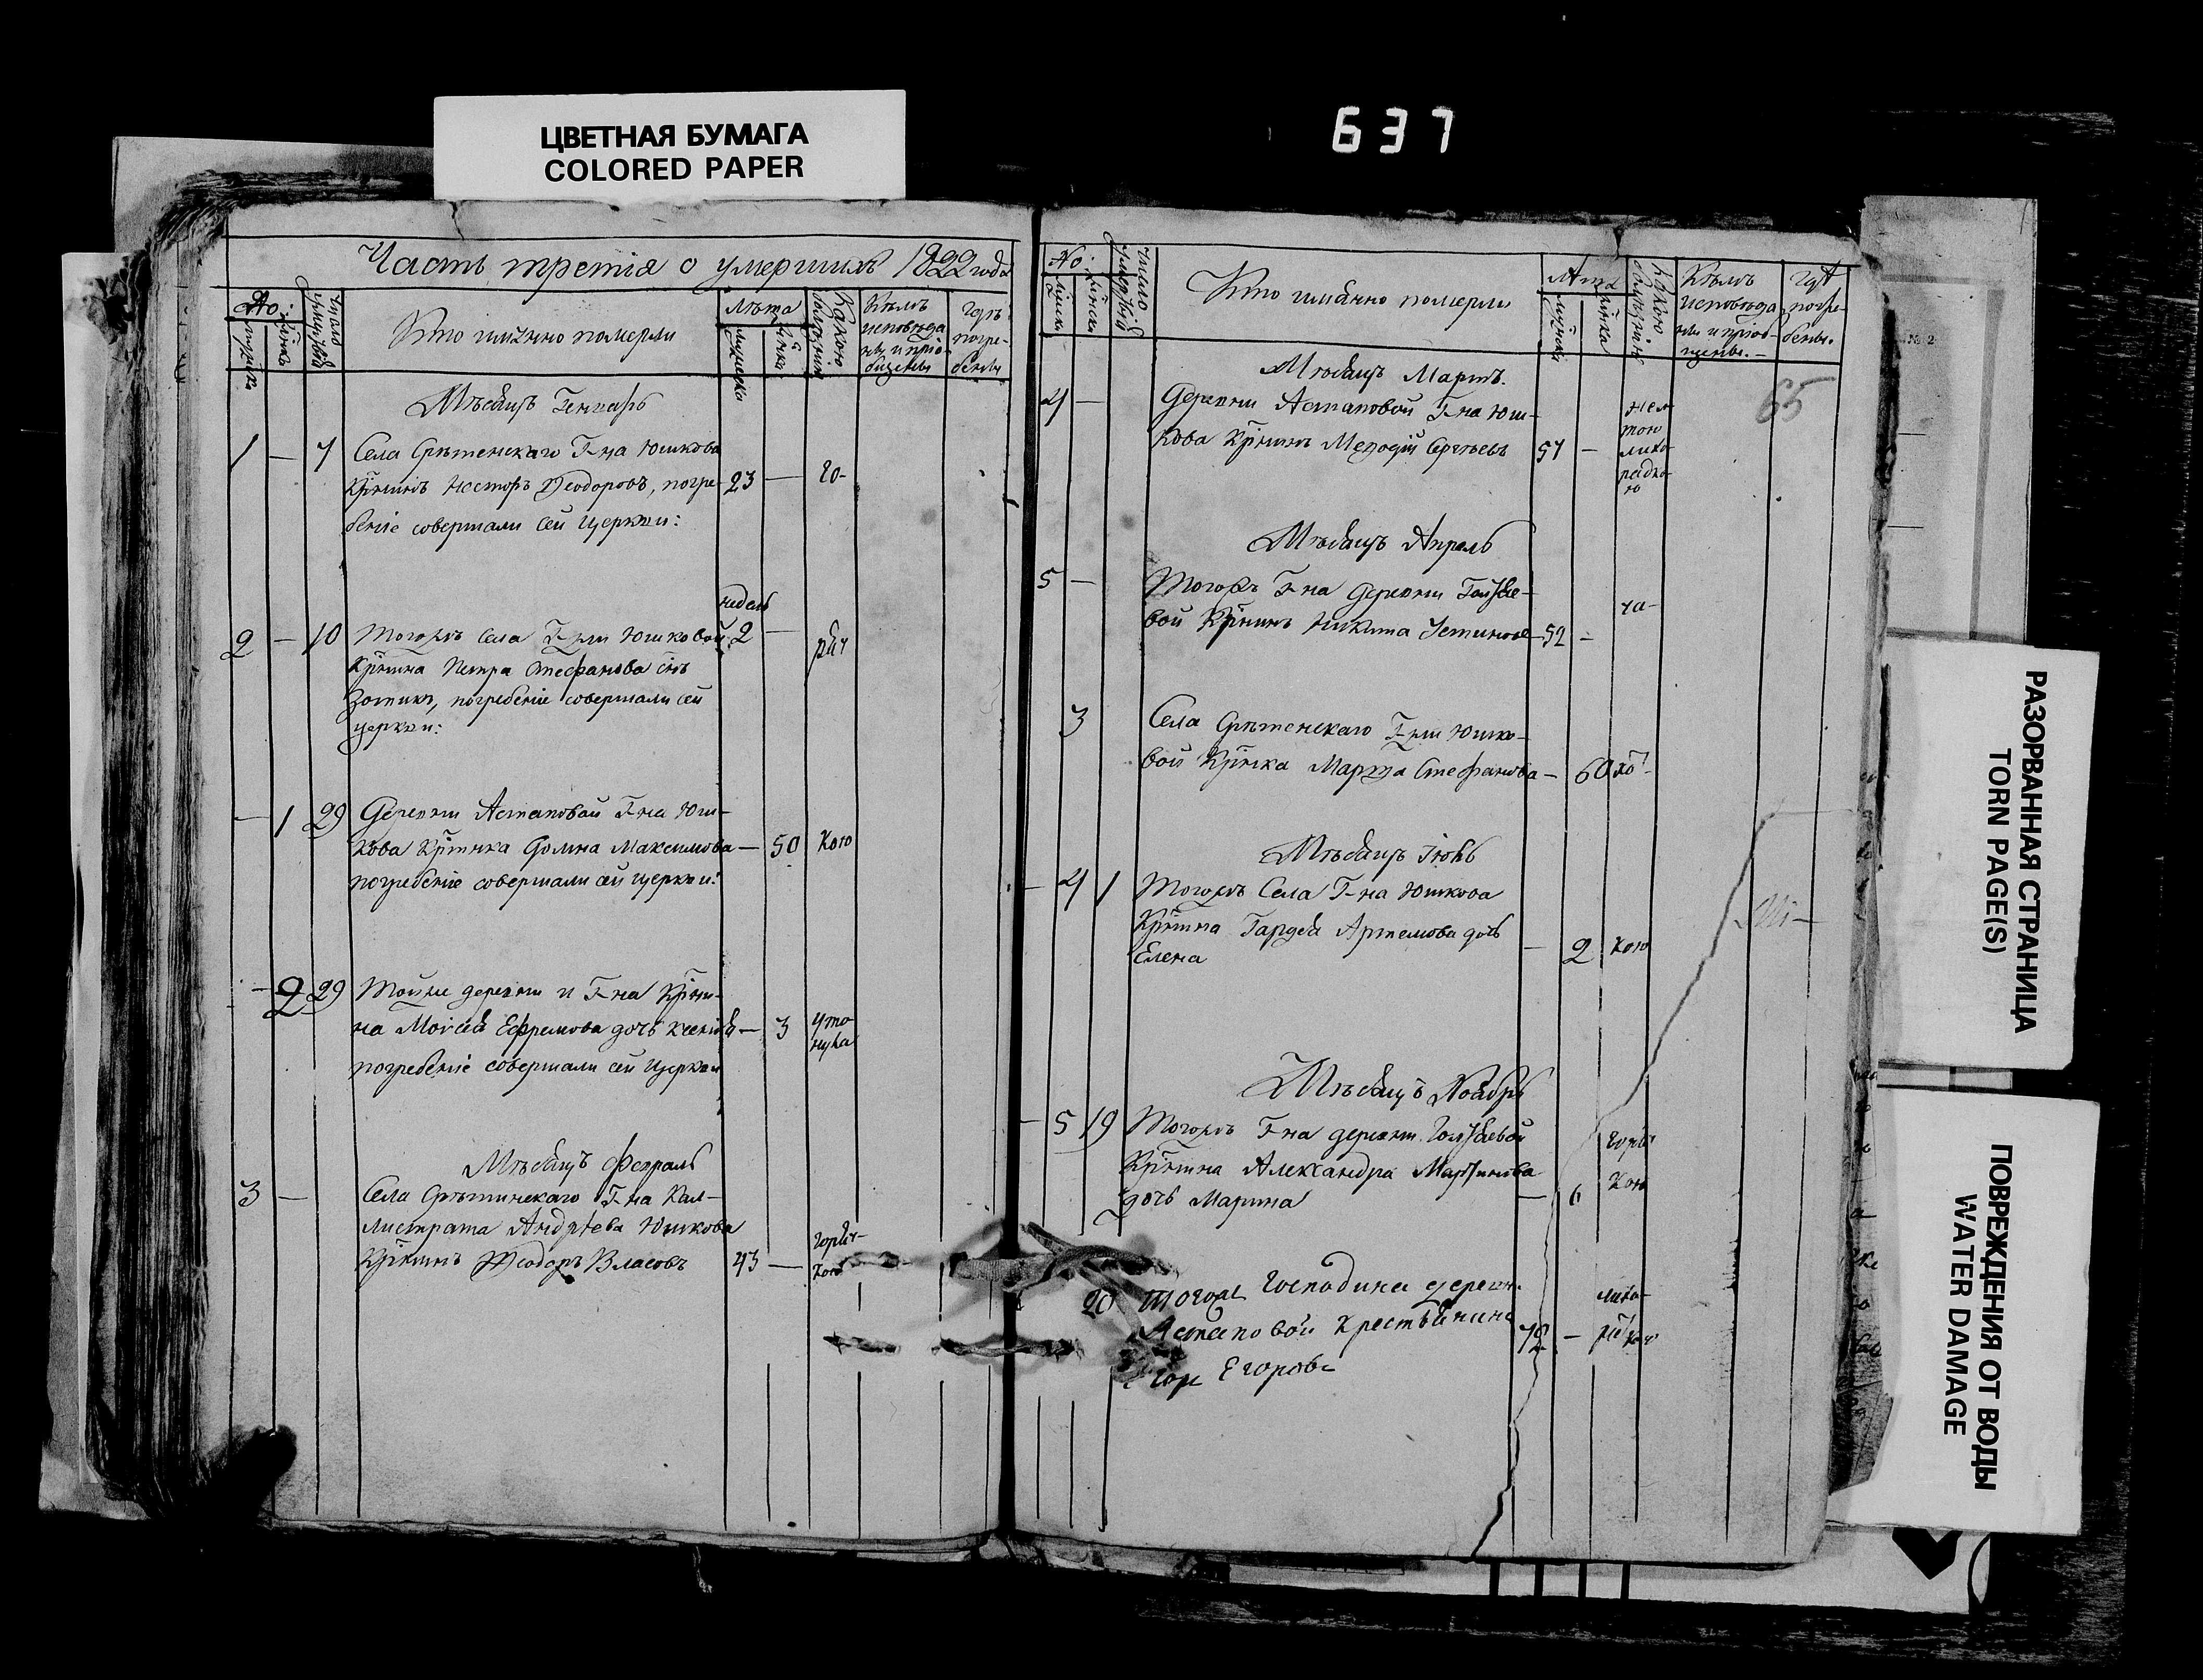 ЦВЕТНАЯ БУМАГА
COLORED PAPER
637
Часть третiя о умершихъ 1822 года
No.
Кто имянно померли
лѣта
Какою болѣзнiю
Кѣмъ исповѣда
ны и прiо-
бщены
Гдѣ погре-
бены
Мѣсяцъ Генварь
1 — 7 Села Срѣтенскаго Г-на Юшкова
Кр̃нинъ Несторъ Ѳеодоровъ, погре- 23 —
бенiе совершали сей церкви:
недель
2 — 10 Тогожъ Села Г-жи Юшковой 2 —
Кр̃нина Петра Стефанова сн̃ъ
Зотикъ, погребенiе совершали сей
церкви:
— 1 29 Деревни Астаповой Г-на Юш-
кова Кр̃тнка Домна Максимова — 50 кою
погребенiе совершали сей церкви:
— 2 29 Тойже деревни и Г-на Кр̃ни-
на Моисея Ефремова дочь Ксенiя — 3 уто
нула
погребенiе совершали сей церкви
Мѣсяцъ Февраль
3 — Села Срѣтинскаго Г-на Кал-
листрата Андрѣева Юшкова
Кр̃нинъ Ѳеодоръ Власовъ 43 — горяч-
кою
No.
Кто имянно померли
Лѣта
Какою болѣзнiю
Кѣмъ
исповѣда
ны и прiоб-
щены.—
Гдѣ
погре-
бены.
65
Мѣсяцъ Мартъ.
4 — Деревни Астаповой Г-на Юш-
кова Кр̃нинъ Меѳодiй Сергѣевъ 57 —
жел
тою
лихо
радко
ю
Мѣсяцъ Апрель
5 — Тогожъ Г-на Деревни
вой Кр̃нинъ Никита Устиновъ 52 —
3 Села Срѣтенскаго Г-жи Юшко-
вой Кр̃нка Марѳа Стефанова — 60
Мѣсяцъ Iюнь
— 4 1 Тогожъ Села Г-на Юшкова
Кр̃нина Гардея Артемова дочь
Елена — 2 кою
Мѣсяцъ Ноябрь
— 5 19 Тогожъ Г-на деревни
Кр̃нина Александра Мартинова
дочь Марина — 6 горяч
кою
20 Тогожъ Господина деревни
Астаповой Крестьянинъ —
Егоровъ
РАЗОРВАННАЯ СТРАНИЦА
TORN PAGE(S)
ПОВРЕЖДЕНИЯ ОТ ВОДЫ
WATER DAMAGE